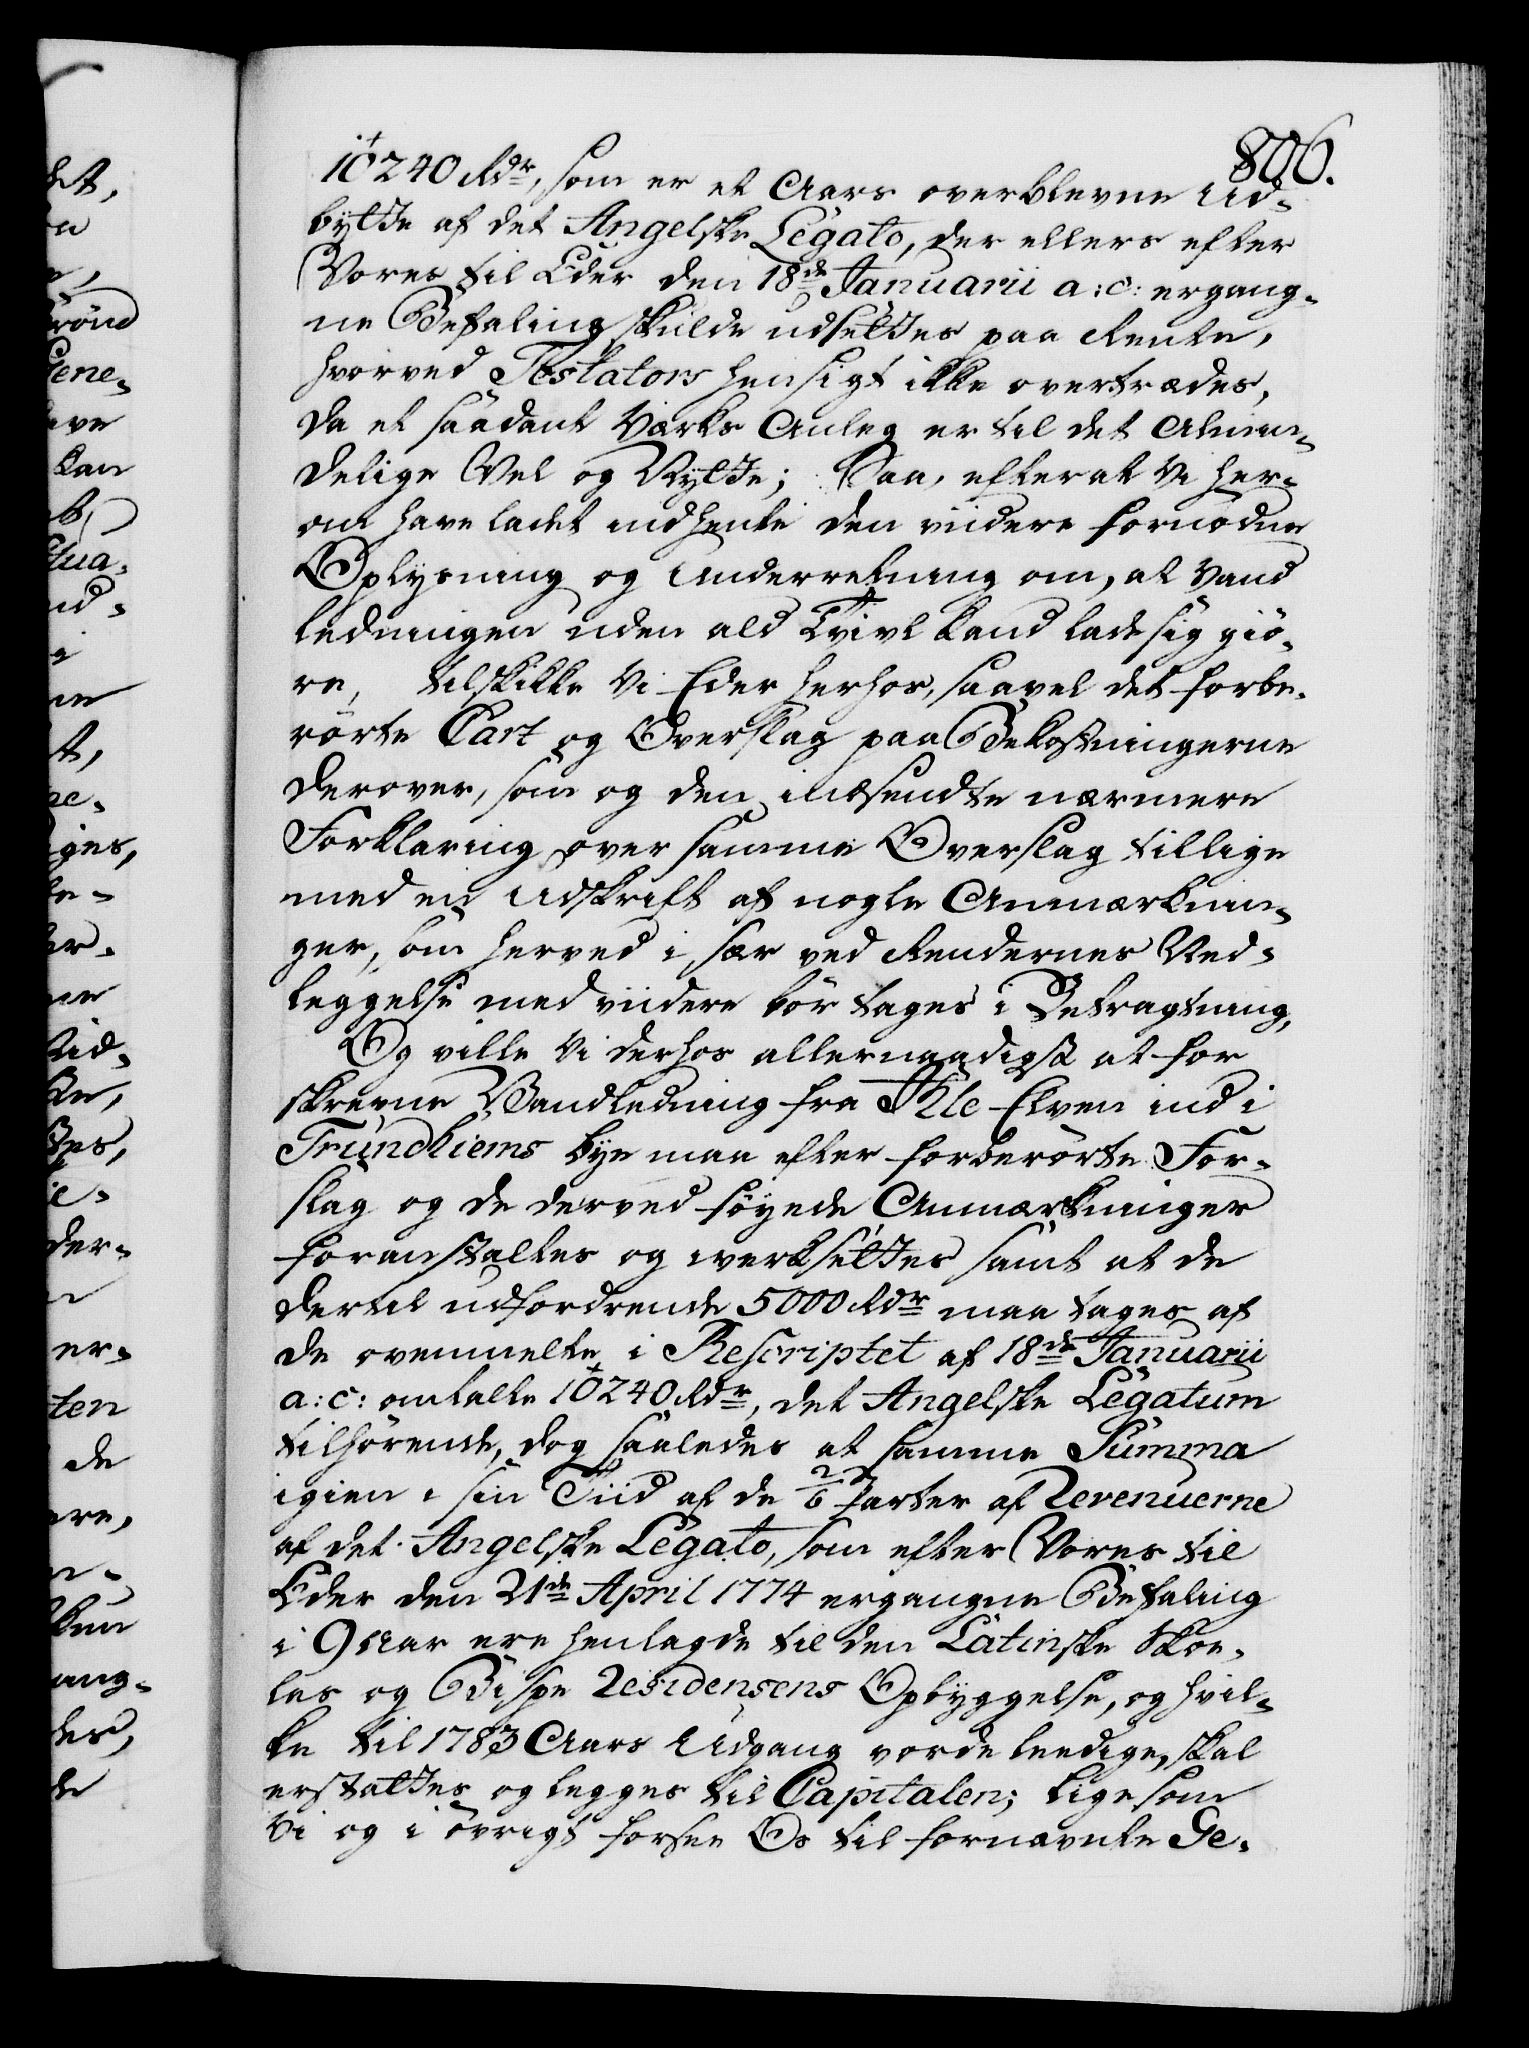 806.
10240 Rdr, som er et Aars overblevne Ud-
bytte af det Angelske Legato, der ellers efter
Vores til Eder den 18de Januarii a: c: ergang-
ne Befaling skulde udsettes paa Rente,
hvorved Testators Hensigt ikke overtrædes,
da et saadant Værks Anleg er til det Almin-
delige Vel og Nytte; Saa, efterat Vi her-
om have ladet indhente den viidere fornødne
Oplysning og Underretning om, at Vand
ledningen uden ald Tvivl kand lade sig giö-
re, tilskikke Vi Eder herhos, saavel det forbe-
rörte Cart og Overslag paa Bekostningerne
derover, som og den indsendte nærmere
Forklaring over samme Overslag tillige
med en Udskrift af nogle Anmærknin-
ger, som herved i sær ved Rendernes Ned-
leggelse med viidere bör tages i Betragtning,
Og ville Vi derhos allernaadigst at for
skrevne Vandledning fra Ihle Elven ind i
Trundhiems bye maa efter forberörte For-
slag og de derved föyede Anmærkninger
foranstaltes og iverksettes samt at de
dertil udfordrende 5000 Rdr maa tages af
de ovenmelte i Rescriptet af 18de Januarii
a: c: omtalte 10240 Rdr, det Angelske Legatum
tilhörende, dog saaledes at samme Summa
igien i sin Tiid af de 2/6 Parter af Revenuerne
af det Angelske Legato, som efter Vores til
Eder den 21de April 1774 ergangne Befaling
i 9 Aar ere henlagde til den Latinske Skoe-
les og Bispe Residensens Opbyggelse, og hvil-
ke til 1783 Aars Udgang vorde leedige, skal
erstattes og legges til Capitalen; ligesom
Vi og i övrigt forsee Os til fornævnte Ge-